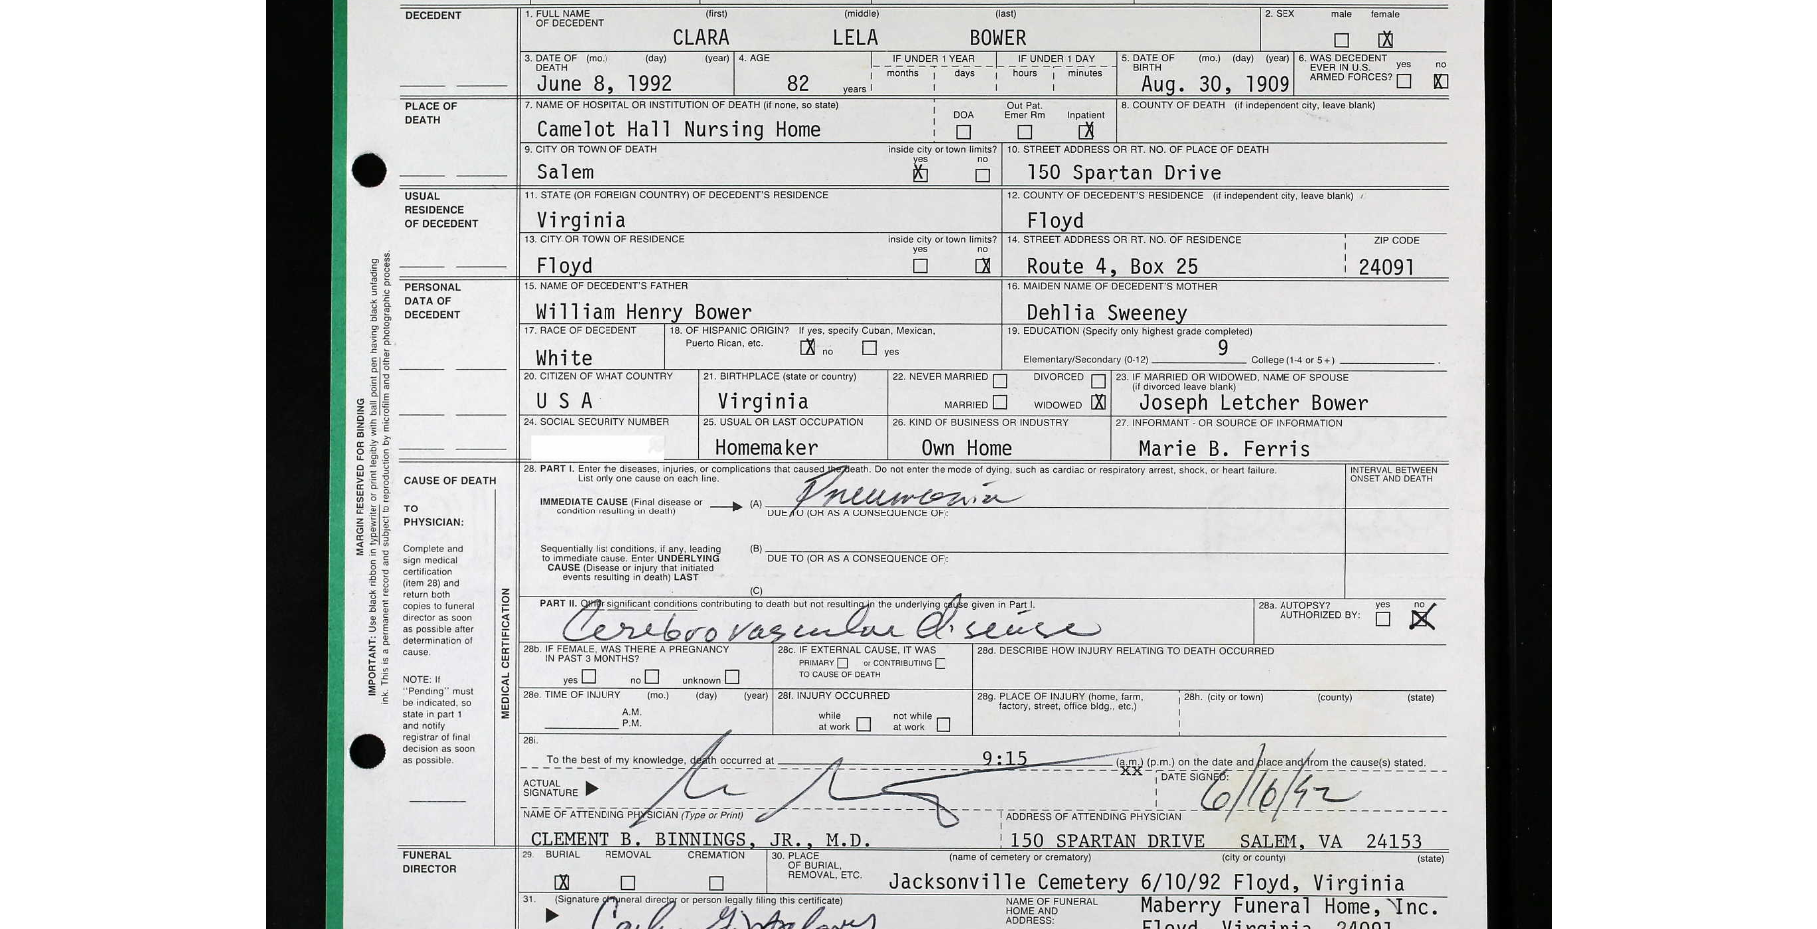 DECEDENT
1. FULL NAME OF DECEDENT (first) (middle) (last)
CLARA LELA BOWER
2. SEX male female
X
3. DATE OF DEATH (mo.) (day) (year)
June 8, 1992
4. AGE
82 years
IF UNDER 1 YEAR
months days
IF UNDER 1 DAY
hours minutes
5. DATE OF BIRTH (mo.) (day) (year)
Aug. 30, 1909
6. WAS DECEDENT EVER IN U.S. ARMED FORCES? yes no
X
PLACE OF DEATH
7. NAME OF HOSPITAL OR INSTITUTION OF DEATH (if none, so state)
Camelot Hall Nursing Home
DOA
Out Pat. Emer Rm
Inpatient
X
8. COUNTY OF DEATH (if independent city, leave blank)
9. CITY OR TOWN OF DEATH
Salem
inside city or town limits?
yes no
X
10. STREET ADDRESS OR RT. NO. OF PLACE OF DEATH
150 Spartan Drive
USUAL RESIDENCE OF DECEDENT
11. STATE (OR FOREIGN COUNTRY) OF DECEDENT'S RESIDENCE
Virginia
12. COUNTY OF DECEDENT'S RESIDENCE (if independent city, leave blank)
Floyd
13. CITY OR TOWN OF RESIDENCE
Floyd
inside city or town limits?
yes no
X
14. STREET ADDRESS OR RT. NO. OF RESIDENCE
Route 4, Box 25
ZIP CODE
24091
PERSONAL DATA OF DECEDENT
15. NAME OF DECEDENT'S FATHER
William Henry Bower
16. MAIDEN NAME OF DECEDENT'S MOTHER
Dehlia Sweeney
17. RACE OF DECEDENT
White
18. OF HISPANIC ORIGIN? If yes, specify Cuban, Mexican, Puerto Rican, etc.
X no yes
19. EDUCATION (Specify only highest grade completed)
Elementary/Secondary (0-12) 9 College (1-4 or 5+)
20. CITIZEN OF WHAT COUNTRY
U S A
21. BIRTHPLACE (state or country)
Virginia
22. NEVER MARRIED DIVORCED
MARRIED WIDOWED X
23. IF MARRIED OR WIDOWED, NAME OF SPOUSE (if divorced leave blank)
Joseph Letcher Bower
24. SOCIAL SECURITY NUMBER
25. USUAL OR LAST OCCUPATION
Homemaker
26. KIND OF BUSINESS OR INDUSTRY
Own Home
27. INFORMANT - OR SOURCE OF INFORMATION
Marie B. Ferris
MARGIN RESERVED FOR BINDING
IMPORTANT: Use black ribbon in typewriter or print legibly with ball point pen having black unfading
ink. This is a permanent record and subject to reproduction by microfilm and other photographic process.
CAUSE OF DEATH
TO PHYSICIAN:
Complete and
sign medical
certification
(item 28) and
return both
copies to funeral
director as soon
as possible after
determination of
cause.
NOTE: If
"Pending" must
be indicated, so
state in part 1
and notify
registrar of final
decision as soon
as possible.
MEDICAL CERTIFICATION
28. PART I. Enter the diseases, injuries, or complications that caused the death. Do not enter the mode of dying, such as cardiac or respiratory arrest, shock, or heart failure.
List only one cause on each line.
INTERVAL BETWEEN ONSET AND DEATH
IMMEDIATE CAUSE (Final disease or condition resulting in death)
(A) Pneumonia
DUE TO (OR AS A CONSEQUENCE OF:
Sequentially list conditions, if any, leading
to immediate cause. Enter UNDERLYING
CAUSE (Disease or injury that initiated
events resulting in death) LAST
(B)
DUE TO (OR AS A CONSEQUENCE OF:
(C)
PART II. Other significant conditions contributing to death but not resulting in the underlying cause given in Part I.
Cerebrovascular disease
28a. AUTOPSY? AUTHORIZED BY: yes no
X
28b. IF FEMALE, WAS THERE A PREGNANCY IN PAST 3 MONTHS?
yes no unknown
28c. IF EXTERNAL CAUSE, IT WAS
PRIMARY or CONTRIBUTING
TO CAUSE OF DEATH
28d. DESCRIBE HOW INJURY RELATING TO DEATH OCCURRED
28e. TIME OF INJURY (mo.) (day) (year)
A.M.
P.M.
28f. INJURY OCCURRED
while at work not while at work
28g. PLACE OF INJURY (home, farm, factory, street, office bldg., etc.)
28h. (city or town) (county) (state)
28i.
To the best of my knowledge, death occurred at 9:15 (a.m.) (p.m.) on the date and place and from the cause(s) stated.
XX
ACTUAL SIGNATURE
DATE SIGNED:
6/10/92
NAME OF ATTENDING PHYSICIAN (Type or Print)
CLEMENT B. BINNINGS, JR., M.D.
ADDRESS OF ATTENDING PHYSICIAN
150 SPARTAN DRIVE SALEM, VA 24153
FUNERAL DIRECTOR
29. BURIAL REMOVAL CREMATION
X
30. PLACE OF BURIAL, REMOVAL, ETC.
(name of cemetery or crematory) (city or county) (state)
Jacksonville Cemetery 6/10/92 Floyd, Virginia
31. (Signature of funeral director or person legally filing this certificate)
NAME OF FUNERAL HOME AND ADDRESS:
Maberry Funeral Home, Inc.
Floyd, Virginia 24091